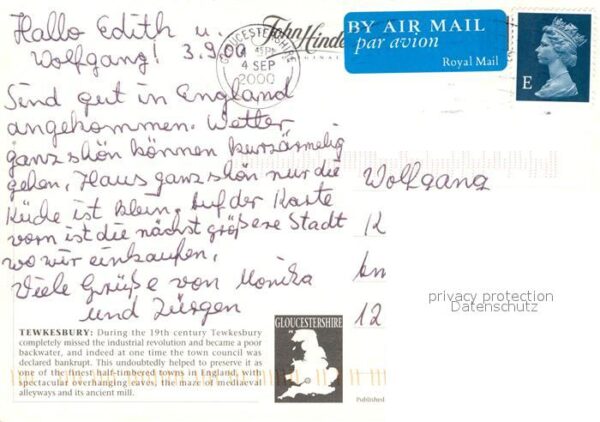 Hallo Edith u.
Wolfgang! 3.9.00
GLOUCESTERSHIRE
4 SEP
2000
John Hinde
BY AIR MAIL
par avion
Royal Mail
E
Sind gut in England
angekommen. Wetter
ganz shön können kurzärmelig
gehen, Haus ganz shön nur die
Küche ist klein. Auf der Karte
vorn ist die nächst größere Stadt
wo wir einkaufen.
Viele Grüße von Monika
und Jürgen
Wolfgang
K
12
privacy protection
Datenschutz
TEWKESBURY: During the 19th century Tewkesbury
completely missed the industrial revolution and became a poor
backwater, and indeed at one time the town council was
declared bankrupt. This undoubtedly helped to preserve it as
one of the finest half-timbered towns in England, with
spectacular overhanging eaves, the maze of mediaeval
alleyways and its ancient mill.
GLOUCESTERSHIRE
Published